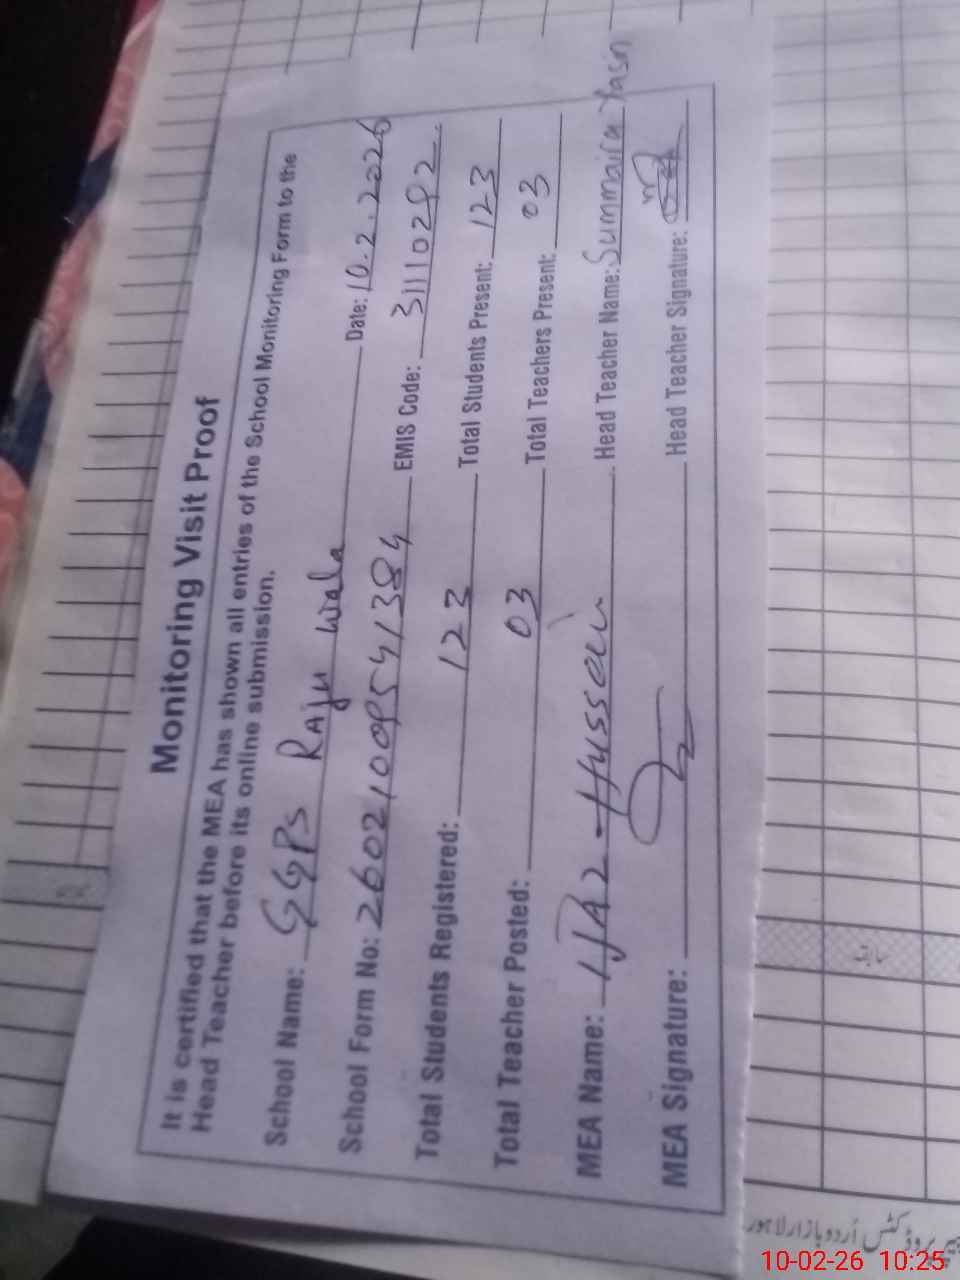 Monitoring Visit Proof
It is certified that the MEA has shown all entries of the School Monitoring Form to the
Head Teacher before its online submission.
School Name: GGPS Raju Wala Date: 10.2.2026
School Form No: EMIS Code:
Total Students Registered: 123 Total Students Present: 123
Total Teacher Posted: 03 Total Teachers Present: 03
MEA Name: IJAZ Hussain Head Teacher Name: Summaira Yasn
MEA Signature: Head Teacher Signature:
اُردو بازار لاہور
10-02-26 10:25